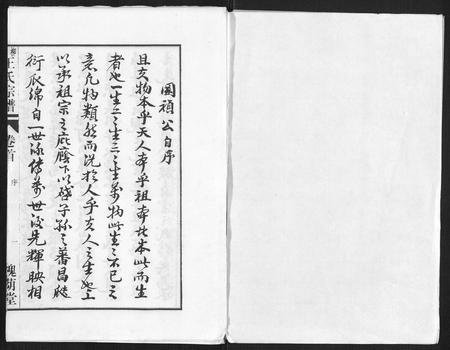 國禎公自序
且夫物本乎天人本乎祖本此而生
者也一生二二生三三生萬物此生生不已之
意凡物類然而況於人乎夫人之生也上
以承祖宗之庇廕下以啓子孫之蕃昌瓞
衍瓜綿自一世以傳萬世後先輝映相
王氏宗譜
卷首
序
一
槐蔭堂